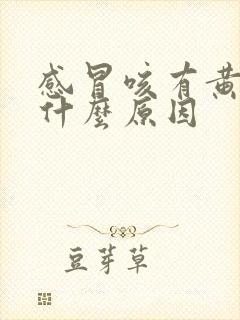 感冒咳有黄
什麼原因
豆芽草